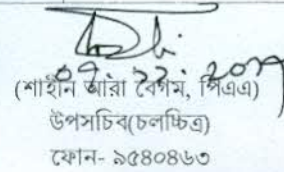 ০৭.১১.২০১৭
(শাহীন আরা বেগম, পিএএ)
উপসচিব(চলচ্চিত্র)
ফোন- ৯৫৪০৪৬৩